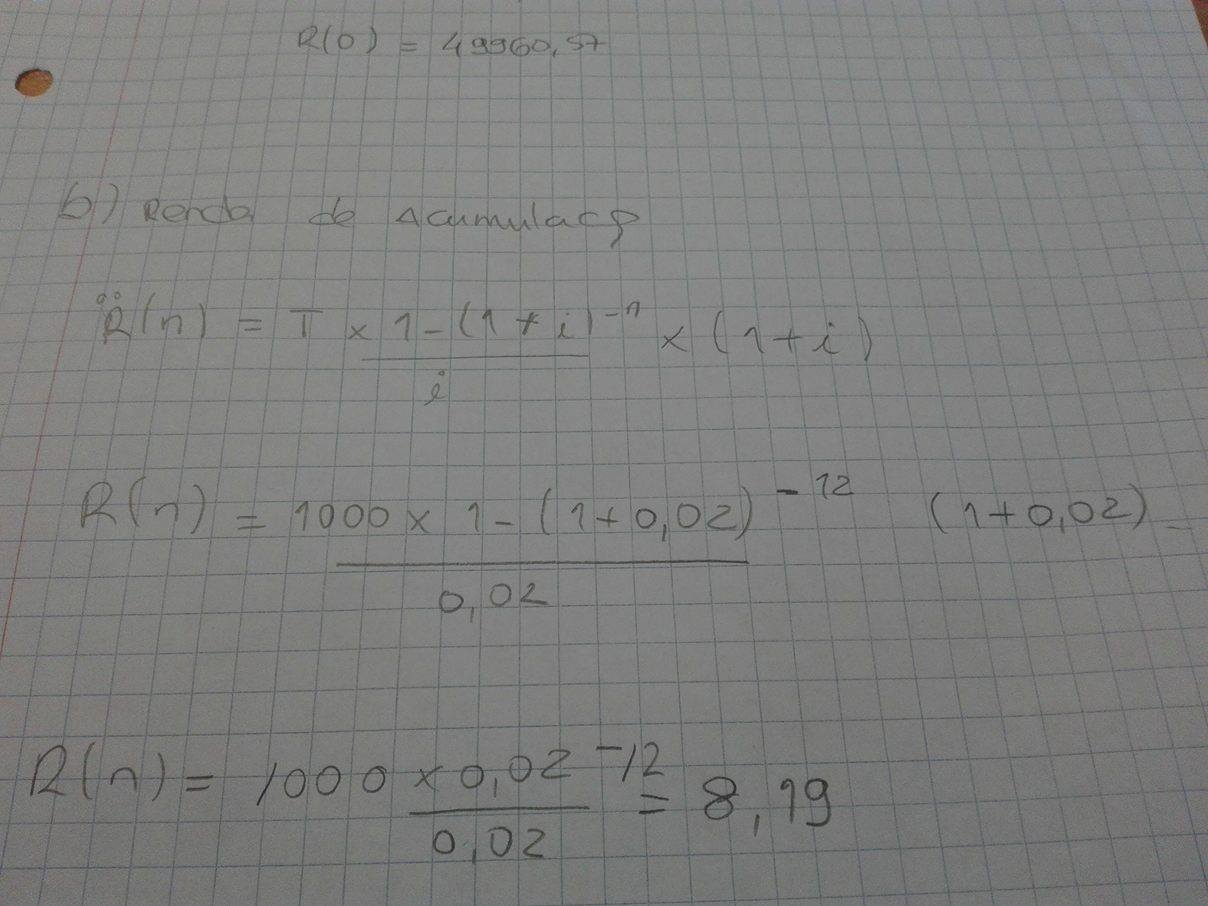 R(0) = 49960,57
b) Renda de Acumulaçã
R̈(n) = T × 1-(1+i)^-n / i × (1+i)
R(n) = 1000 × 1-(1+0,02)^-12 / 0,02 (1+0,02)
R(n) = 1000 × 0,02^-12 / 0,02 = 8,19